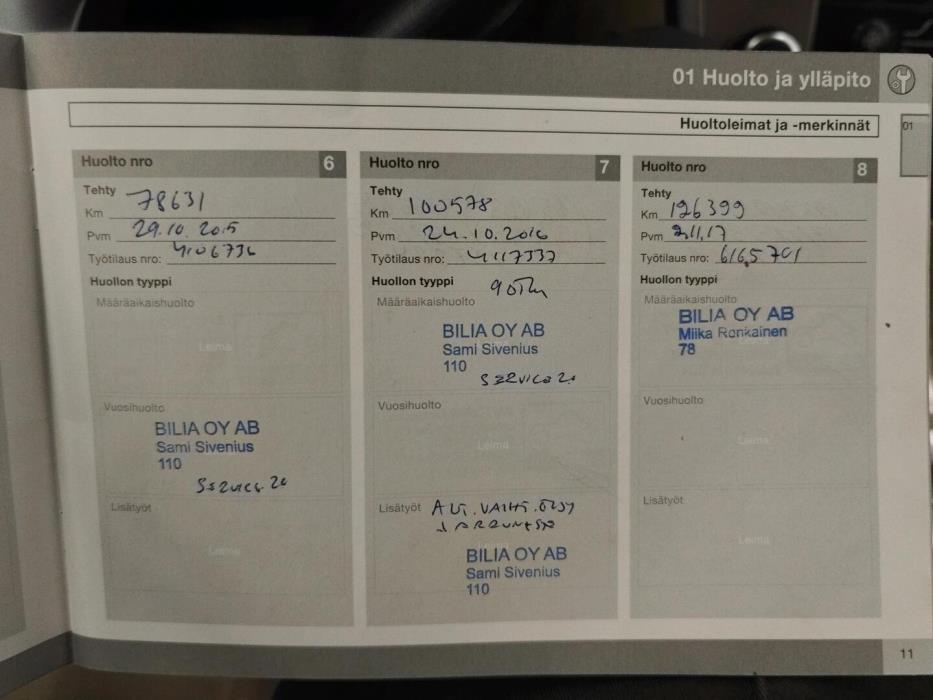 01 Huolto ja ylläpito
Huoltoleimat ja -merkinnät
01
Huolto nro 6
Tehty
Km 78631
Pvm 29.10.2015
Työtilaus nro: 4106736
Huollon tyyppi
Määräaikaishuolto
Leima
Vuosihuolto
BILIA OY AB
Sami Sivenius
110
Lisätyöt
Leima
Huolto nro 7
Tehty
Km 100578
Pvm 24.10.2016
Työtilaus nro: 4117337
Huollon tyyppi
Määräaikaishuolto
BILIA OY AB
Sami Sivenius
110
Vuosihuolto
Leima
Lisätyöt
BILIA OY AB
Sami Sivenius
110
Huolto nro 8
Tehty
Km 126399
Pvm
Työtilaus nro: 6165701
Huollon tyyppi
Määräaikaishuolto
BILIA OY AB
Miika Ronkainen
78
Vuosihuolto
Leima
Lisätyöt
Leima
11